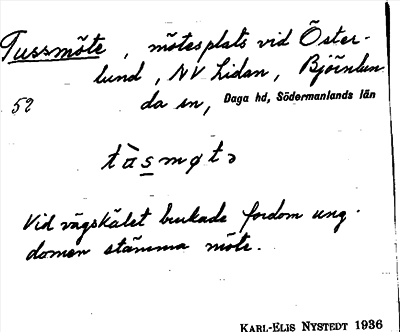 Tussmöte, mötesplats vid Öster-
lund, NV Lidan, Björnlun
52 da sn, Daga hd, Södermanlands län
tàsmøtə
Vid vägskälet brukade fordom ung-
domen stämma möte.
KARL-ELIS NYSTEDT 1936